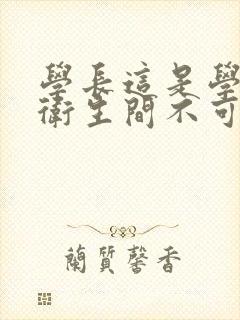 學長這是學
衛生間不可
蘭質馨香